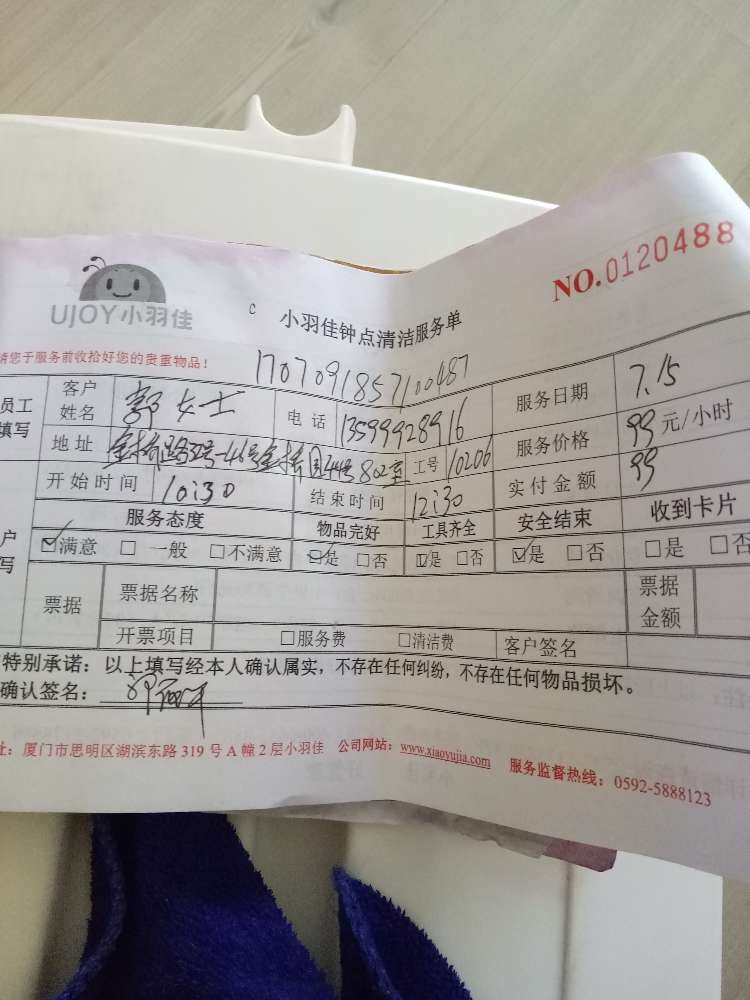 NO.0120488
UJOY小羽佳
c 小羽佳钟点清洁服务单
请您于服务前收拾好您的贵重物品!
1707091857100487
员工填写 客户姓名 郭女士 电话 13599928916 服务日期 7.15
地址 44号802室 工号 10206 服务价格 99元/小时
开始时间 10:30 结束时间 12:30 实付金额 99
服务态度 物品完好 工具齐全 安全结束 收到卡片
户写 ☑满意 □一般 □不满意 ☑是 □否 ☑是 □否 ☑是 □否 □是 □否
票据 票据名称 票据金额
开票项目 □服务费 □清洁费 客户签名
特别承诺:以上填写经本人确认属实,不存在任何纠纷,不存在任何物品损坏。
确认签名:
址:厦门市思明区湖滨东路319号A幢2层小羽佳 公司网站:www.xiaoyujia.com 服务监督热线:0592-5888123